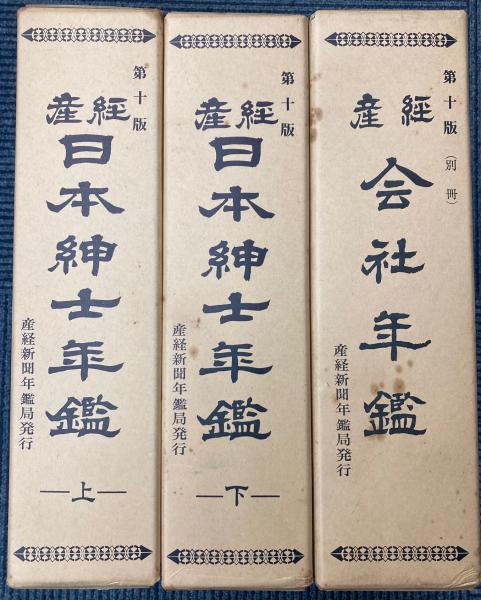 第十版
産経
日本紳士年鑑
産経新聞年鑑局発行
上
第十版
産経
日本紳士年鑑
産経新聞年鑑局発行
下
第十版(別冊)
産経
会社年鑑
産経新聞年鑑局発行